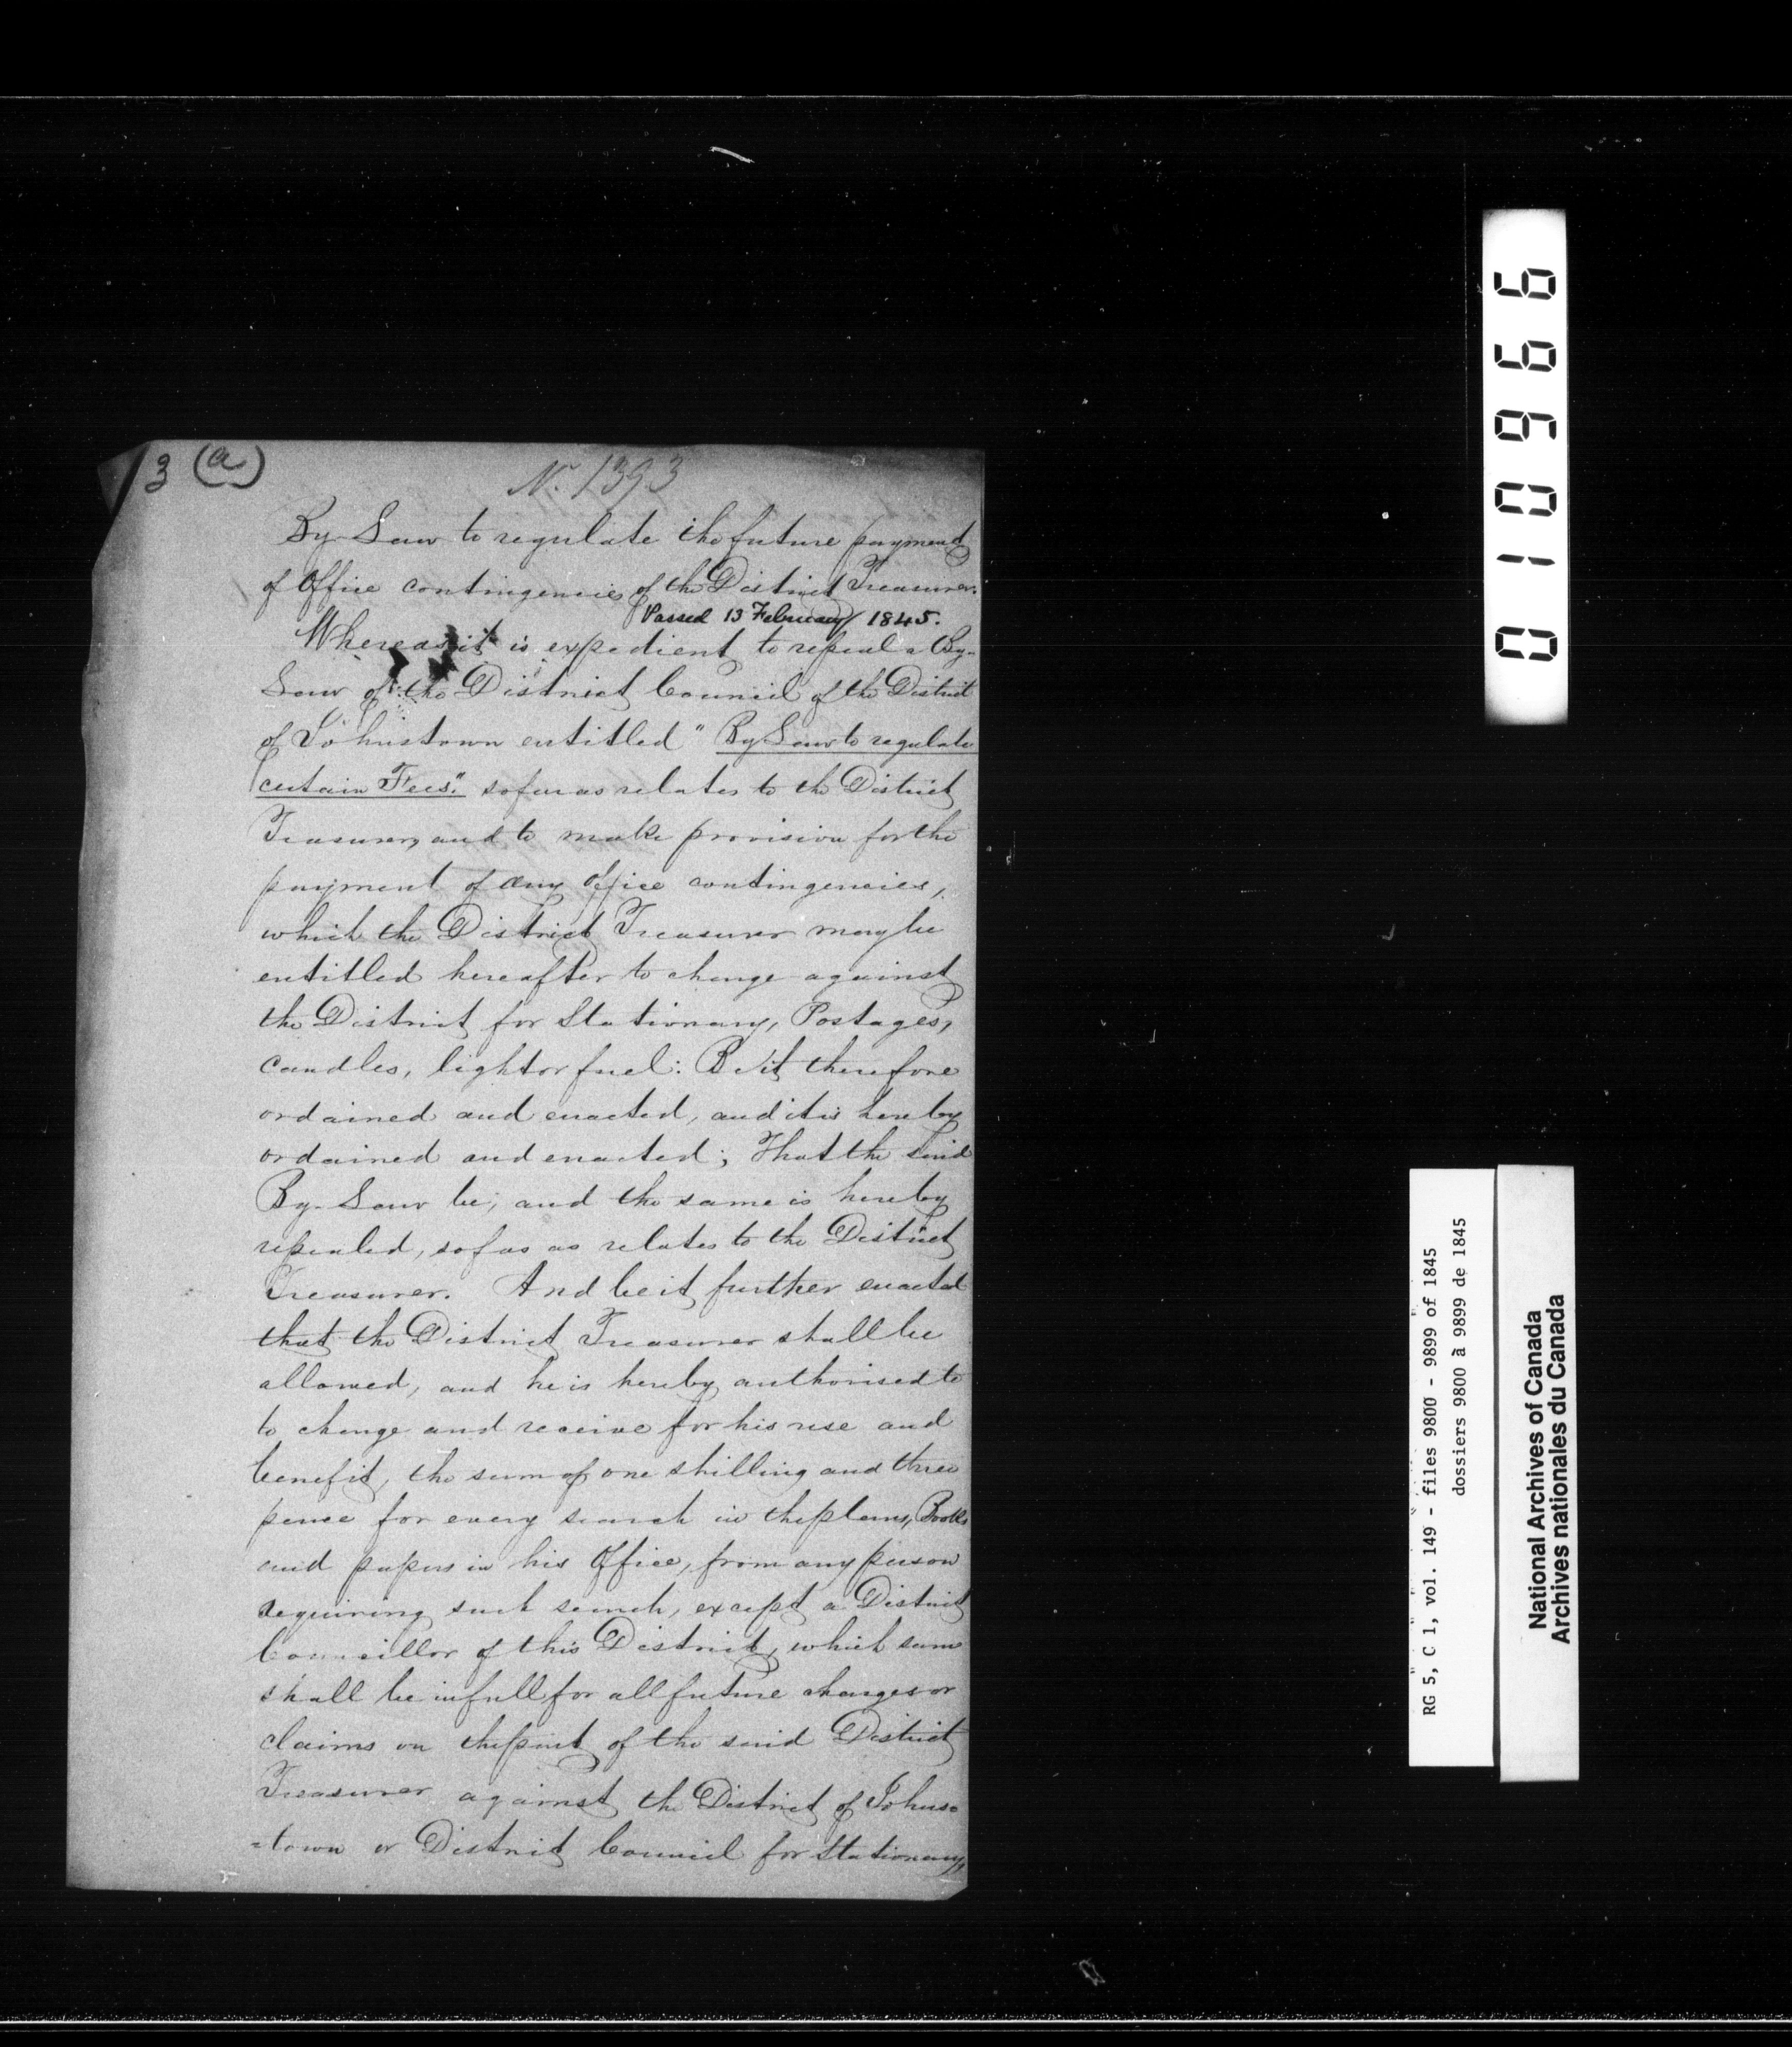 3 (a)
No. 1393
By-Law to regulate the future payment
of Office contingencies of the District Treasurer.
Passed 13 February 1845.
Whereas it is expedient to repeal a By-
Law of the District Council of the District
of Johnstown entitled "By Law to regulate
certain Fees." so far as relates to the District
Treasurer, and to make provision for the
payment of any office contingencies,
which the District Treasurer may be
entitled hereafter to charge against
the District for Stationary, Postages,
candles, light or fuel: Be it therefore
ordained and enacted, and it is hereby
ordained and enacted; That the said
By-Law be, and the same is hereby
repealed, so far as relates to the District
Treasurer. And be it further enacted
that the District Treasurer shall be
allowed, and he is hereby authorised to
to charge and receive for his use and
benefit, the sum of one shilling and three
pence for every search in the plans, Books
and papers in his Office, from any person
requiring such search, except a District
Councillor of this District, which sum
shall be in full for all future charges or
claims on the part of the said District
Treasurer against the District of Johns=
=town or District Council for Stationary,
010966
RG 5, C 1, vol. 149 - files 9800 - 9899 of 1845
dossiers 9800 à 9899 de 1845
National Archives of Canada
Archives nationales du Canada